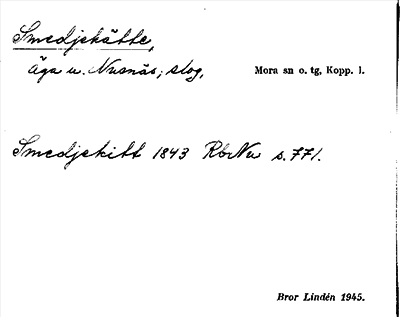 Smedjekätte,
äga u. Nusnäs; skog,
Mora sn o. tg, Kopp. l.
Smedjekitt 1843 RbNu s. 771.
Bror Lindén 1945.